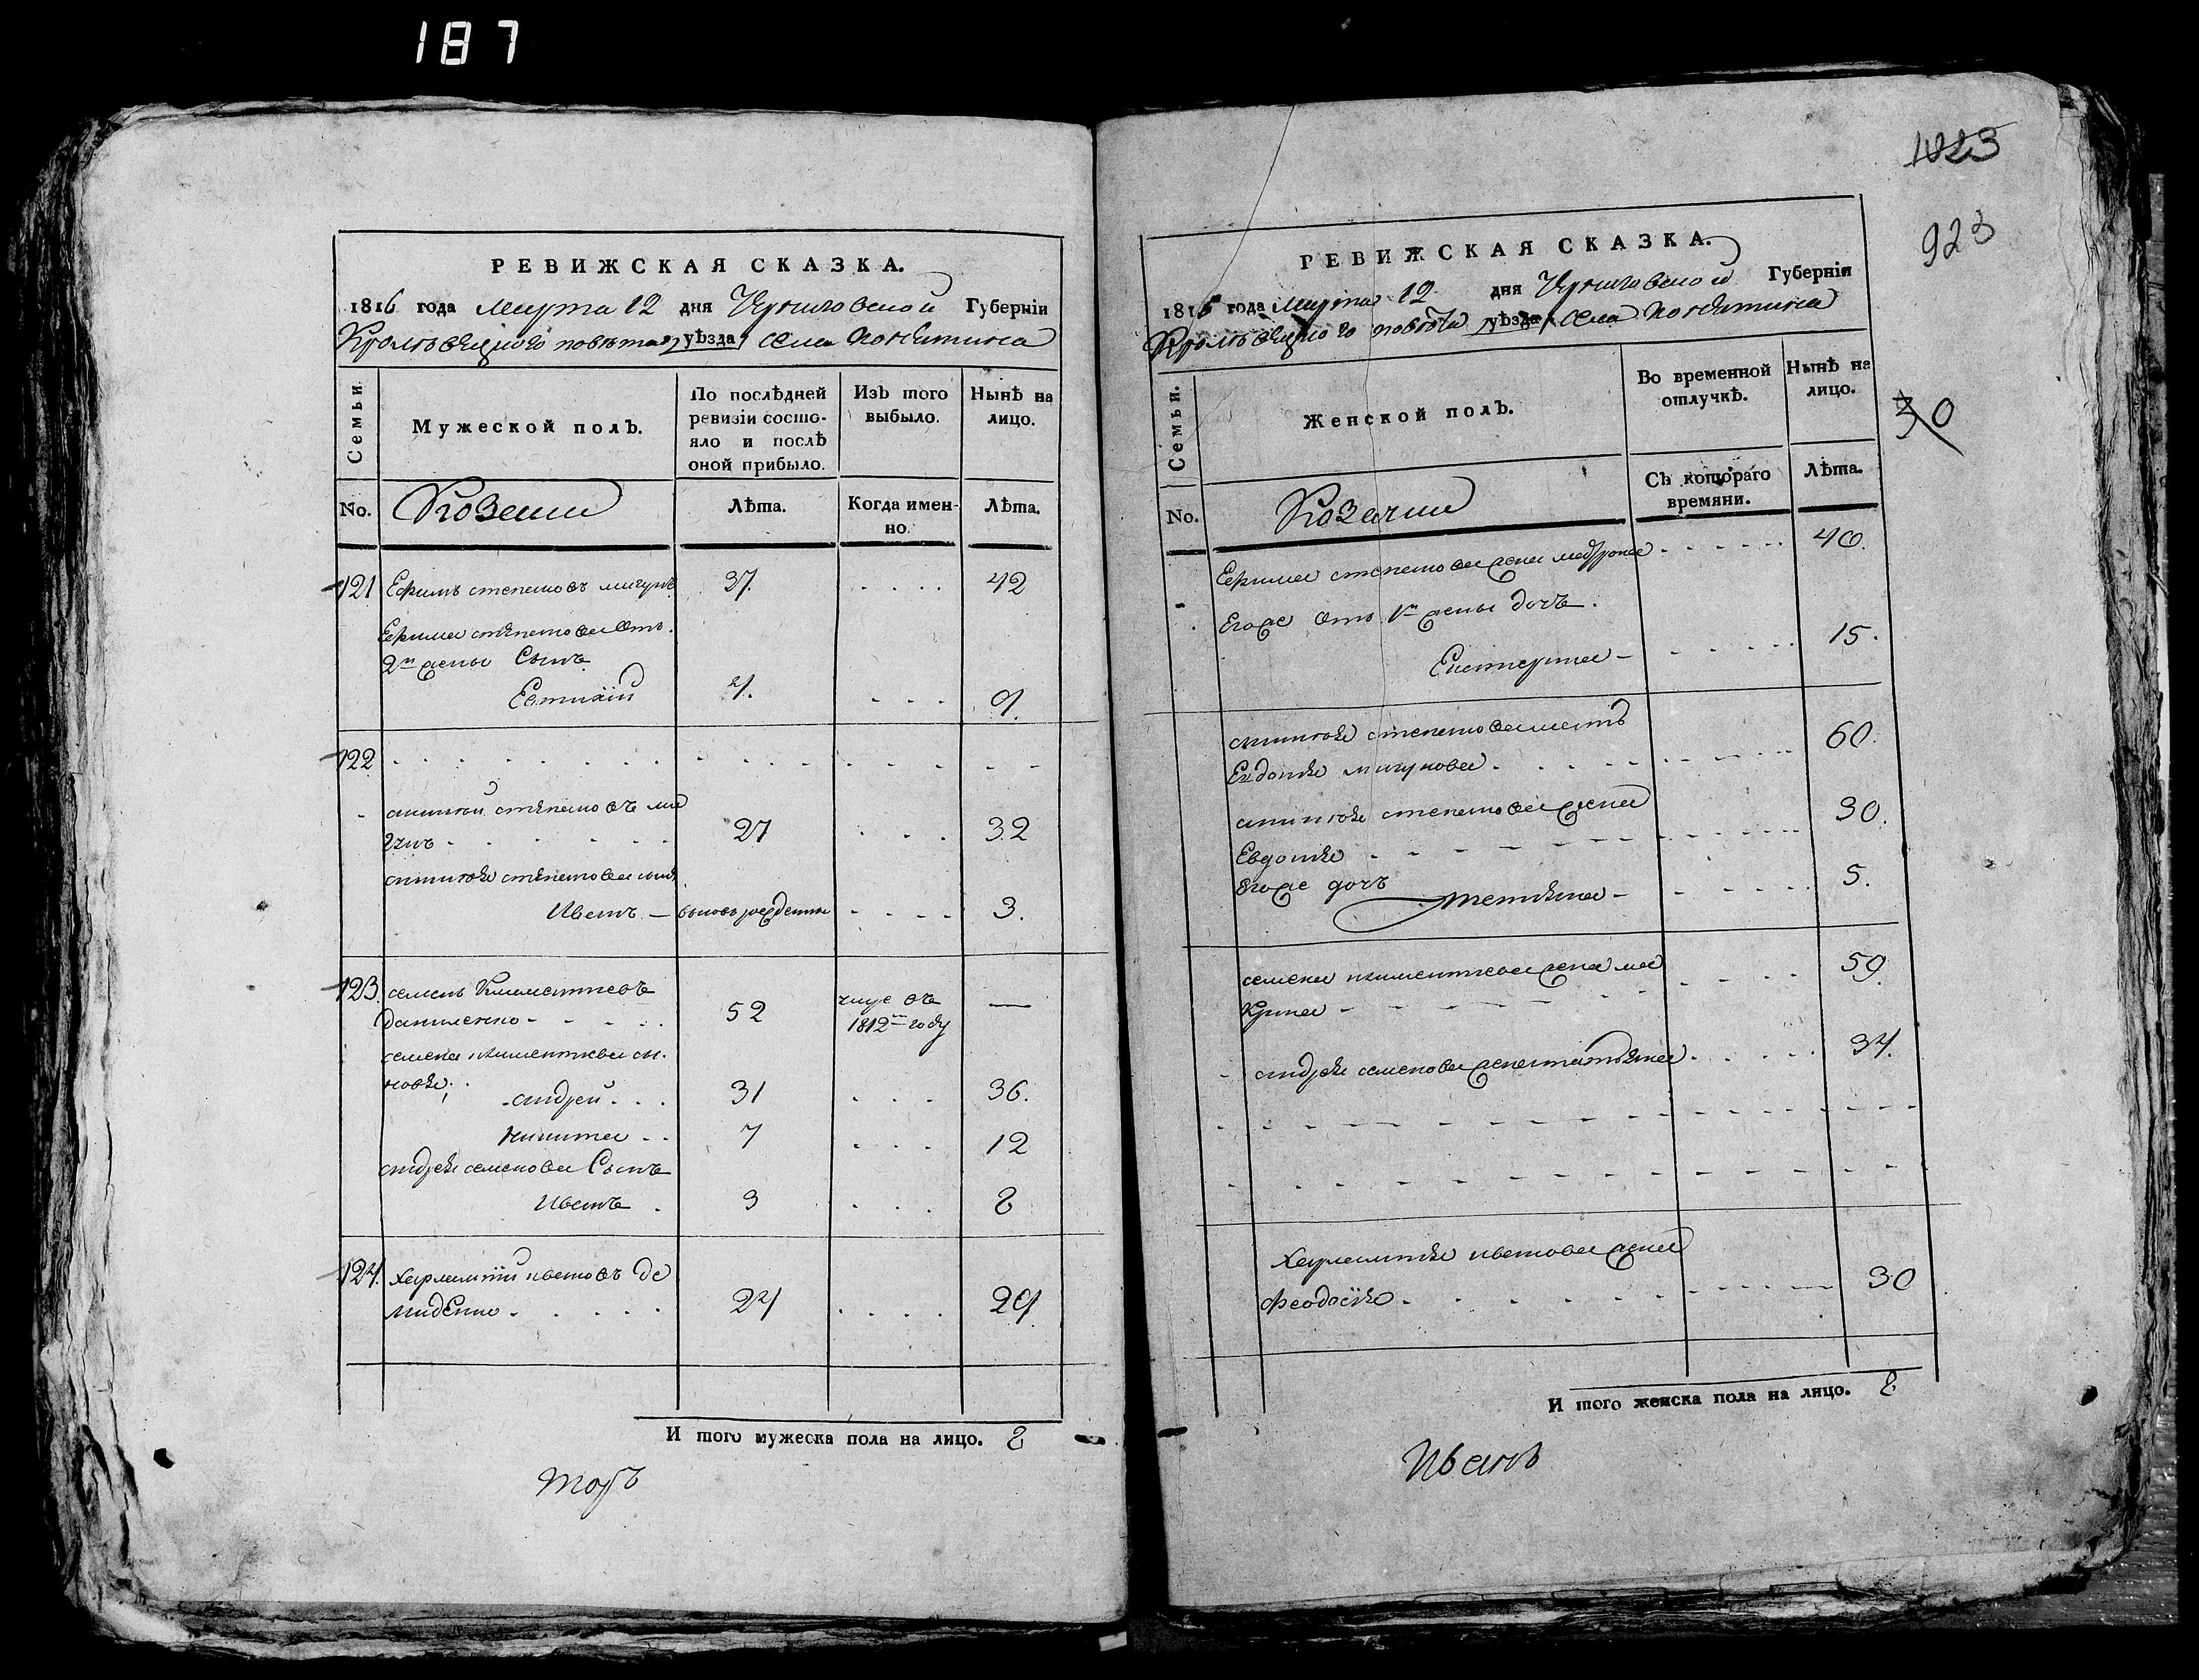 187
РЕВИЖСКАЯ СКАЗКА.
1816 года Марта 12 дня Черниговской Губерніи
Кролевецкого повѣта уѣзда села
Семьи.
Мужеской полъ.
По послѣдней ревизіи состояло и послѣ оной прибыло.
Изъ того выбыло.
Нынѣ на лицо.
No.
Козаки
Лѣта.
Когда именно.
Лѣта.
121 Ефимъ степановъ мигунъ 37. 42
Ефима степанова отъ
2й жены Сынъ
Евтихій 4. 9.
122
антонъ степановъ ми
гунъ 27 32
степанова сынъ
Иванъ — вновь рожденный 3.
123. семенъ Климентиевъ
Даниленко 52 умре въ —
1812м году
семена климентиева сы
новья;
андрей 31 36.
никита 7 12
андрея семенова Сынъ
Иванъ 3 8
124. Харлампій ивановъ де
миденко 24 29.
И того мужеска пола на лицо. 8
1023
923
30
РЕВИЖСКАЯ СКАЗКА.
1816 года Марта 12 дня Черниговской Губерніи
Кролевецкого повѣта уѣзда села
Семьи.
Женской полъ.
Во временной отлучкѣ.
Нынѣ на лицо.
No.
Козачки
Съ котораго времяни.
Лѣта.
Ефима степанова жена матрона 40.
Егоже отъ 1й жены дочь
Екатерина 15.
степанова мать
Евдокия мигунова 60.
степанова жена
Евдокия 30.
Егоже дочь татяна 5.
семена климентиева жена ма
крина 59.
андрея семенова жена татяна 34.
Харлампия иванова жена
Феодосия 30
И того женска пола на лицо. 8
Иванъ